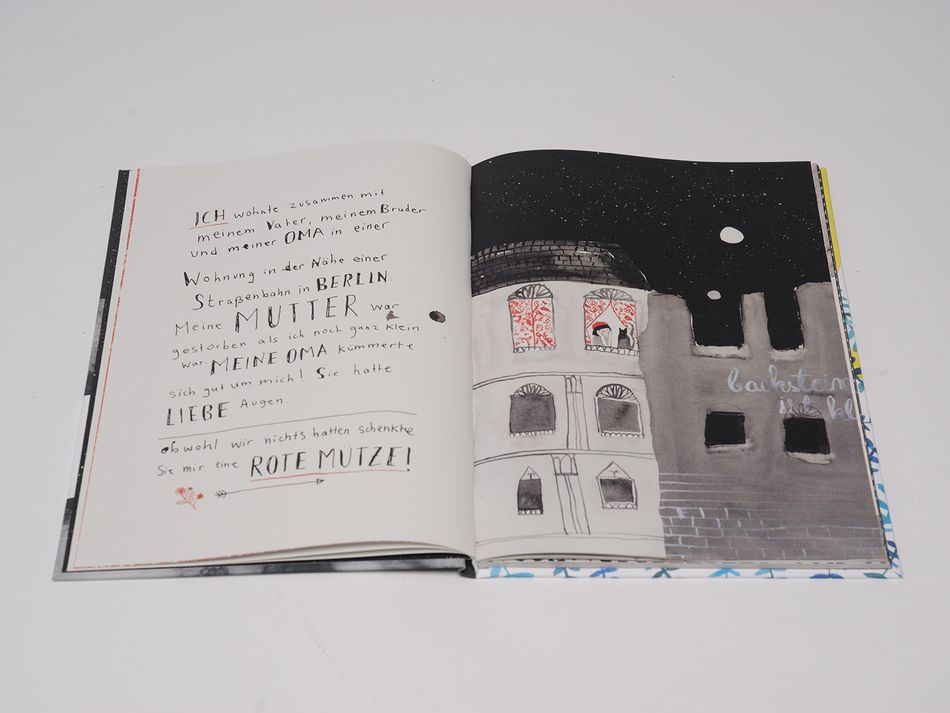 ICH wohnte zusammen mit
meinem Vater, meinem Bruder
und meiner OMA in einer
Wohnung in der Nähe einer
Straßenbahn in BERLIN.
Meine MUTTER war
gestorben als ich noch ganz klein
war. MEINE OMA kümmerte
sich gut um mich! Sie hatte
LIEBE Augen.
obwohl wir nichts hatten schenkte
Sie mir eine ROTE MÜTZE!
backstein
ist kl